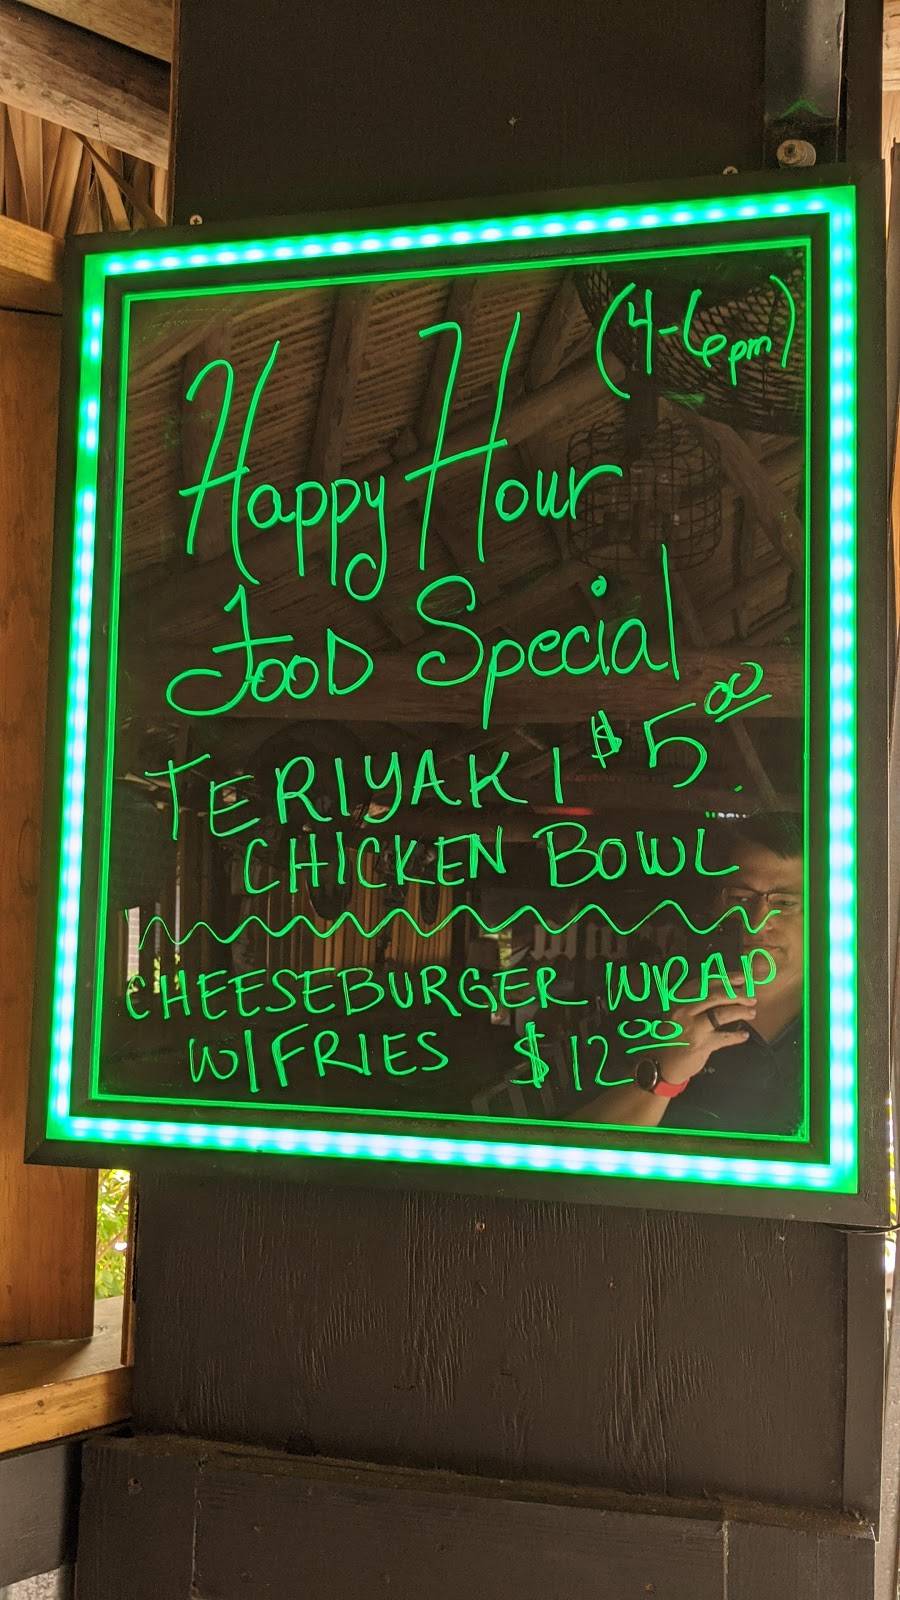 (4-6pm)
Happy Hour
Food Special
TERIYAKI $5.00
CHICKEN BOWL
CHEESEBURGER WRAP
W/FRIES $12.00